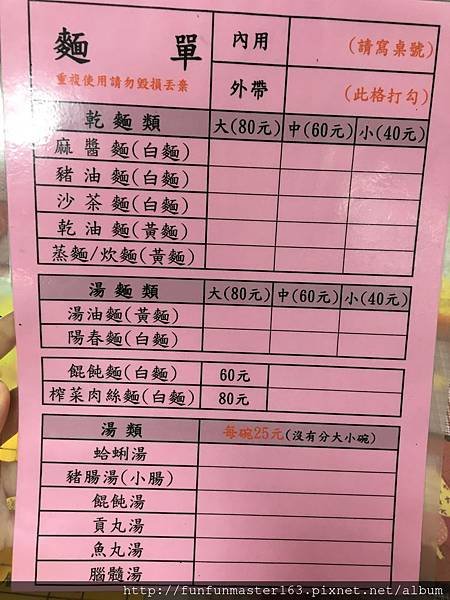 麵 單 內用 (請寫桌號)
重複使用請勿毀損丟棄 外帶 (此格打勾)
乾麵類 大(80元) 中(60元) 小(40元)
麻醬麵(白麵)
豬油麵(白麵)
沙茶麵(白麵)
乾油麵(黃麵)
蒸麵/炊麵(黃麵)
湯麵類 大(80元) 中(60元) 小(40元)
湯油麵(黃麵)
陽春麵(白麵)
餛飩麵(白麵) 60元
榨菜肉絲麵(白麵) 80元
湯類 每碗25元(沒有分大小碗)
蛤蜊湯
豬腸湯(小腸)
餛飩湯
貢丸湯
魚丸湯
腦髓湯
http://funfunmaster163.pixnet.net/album